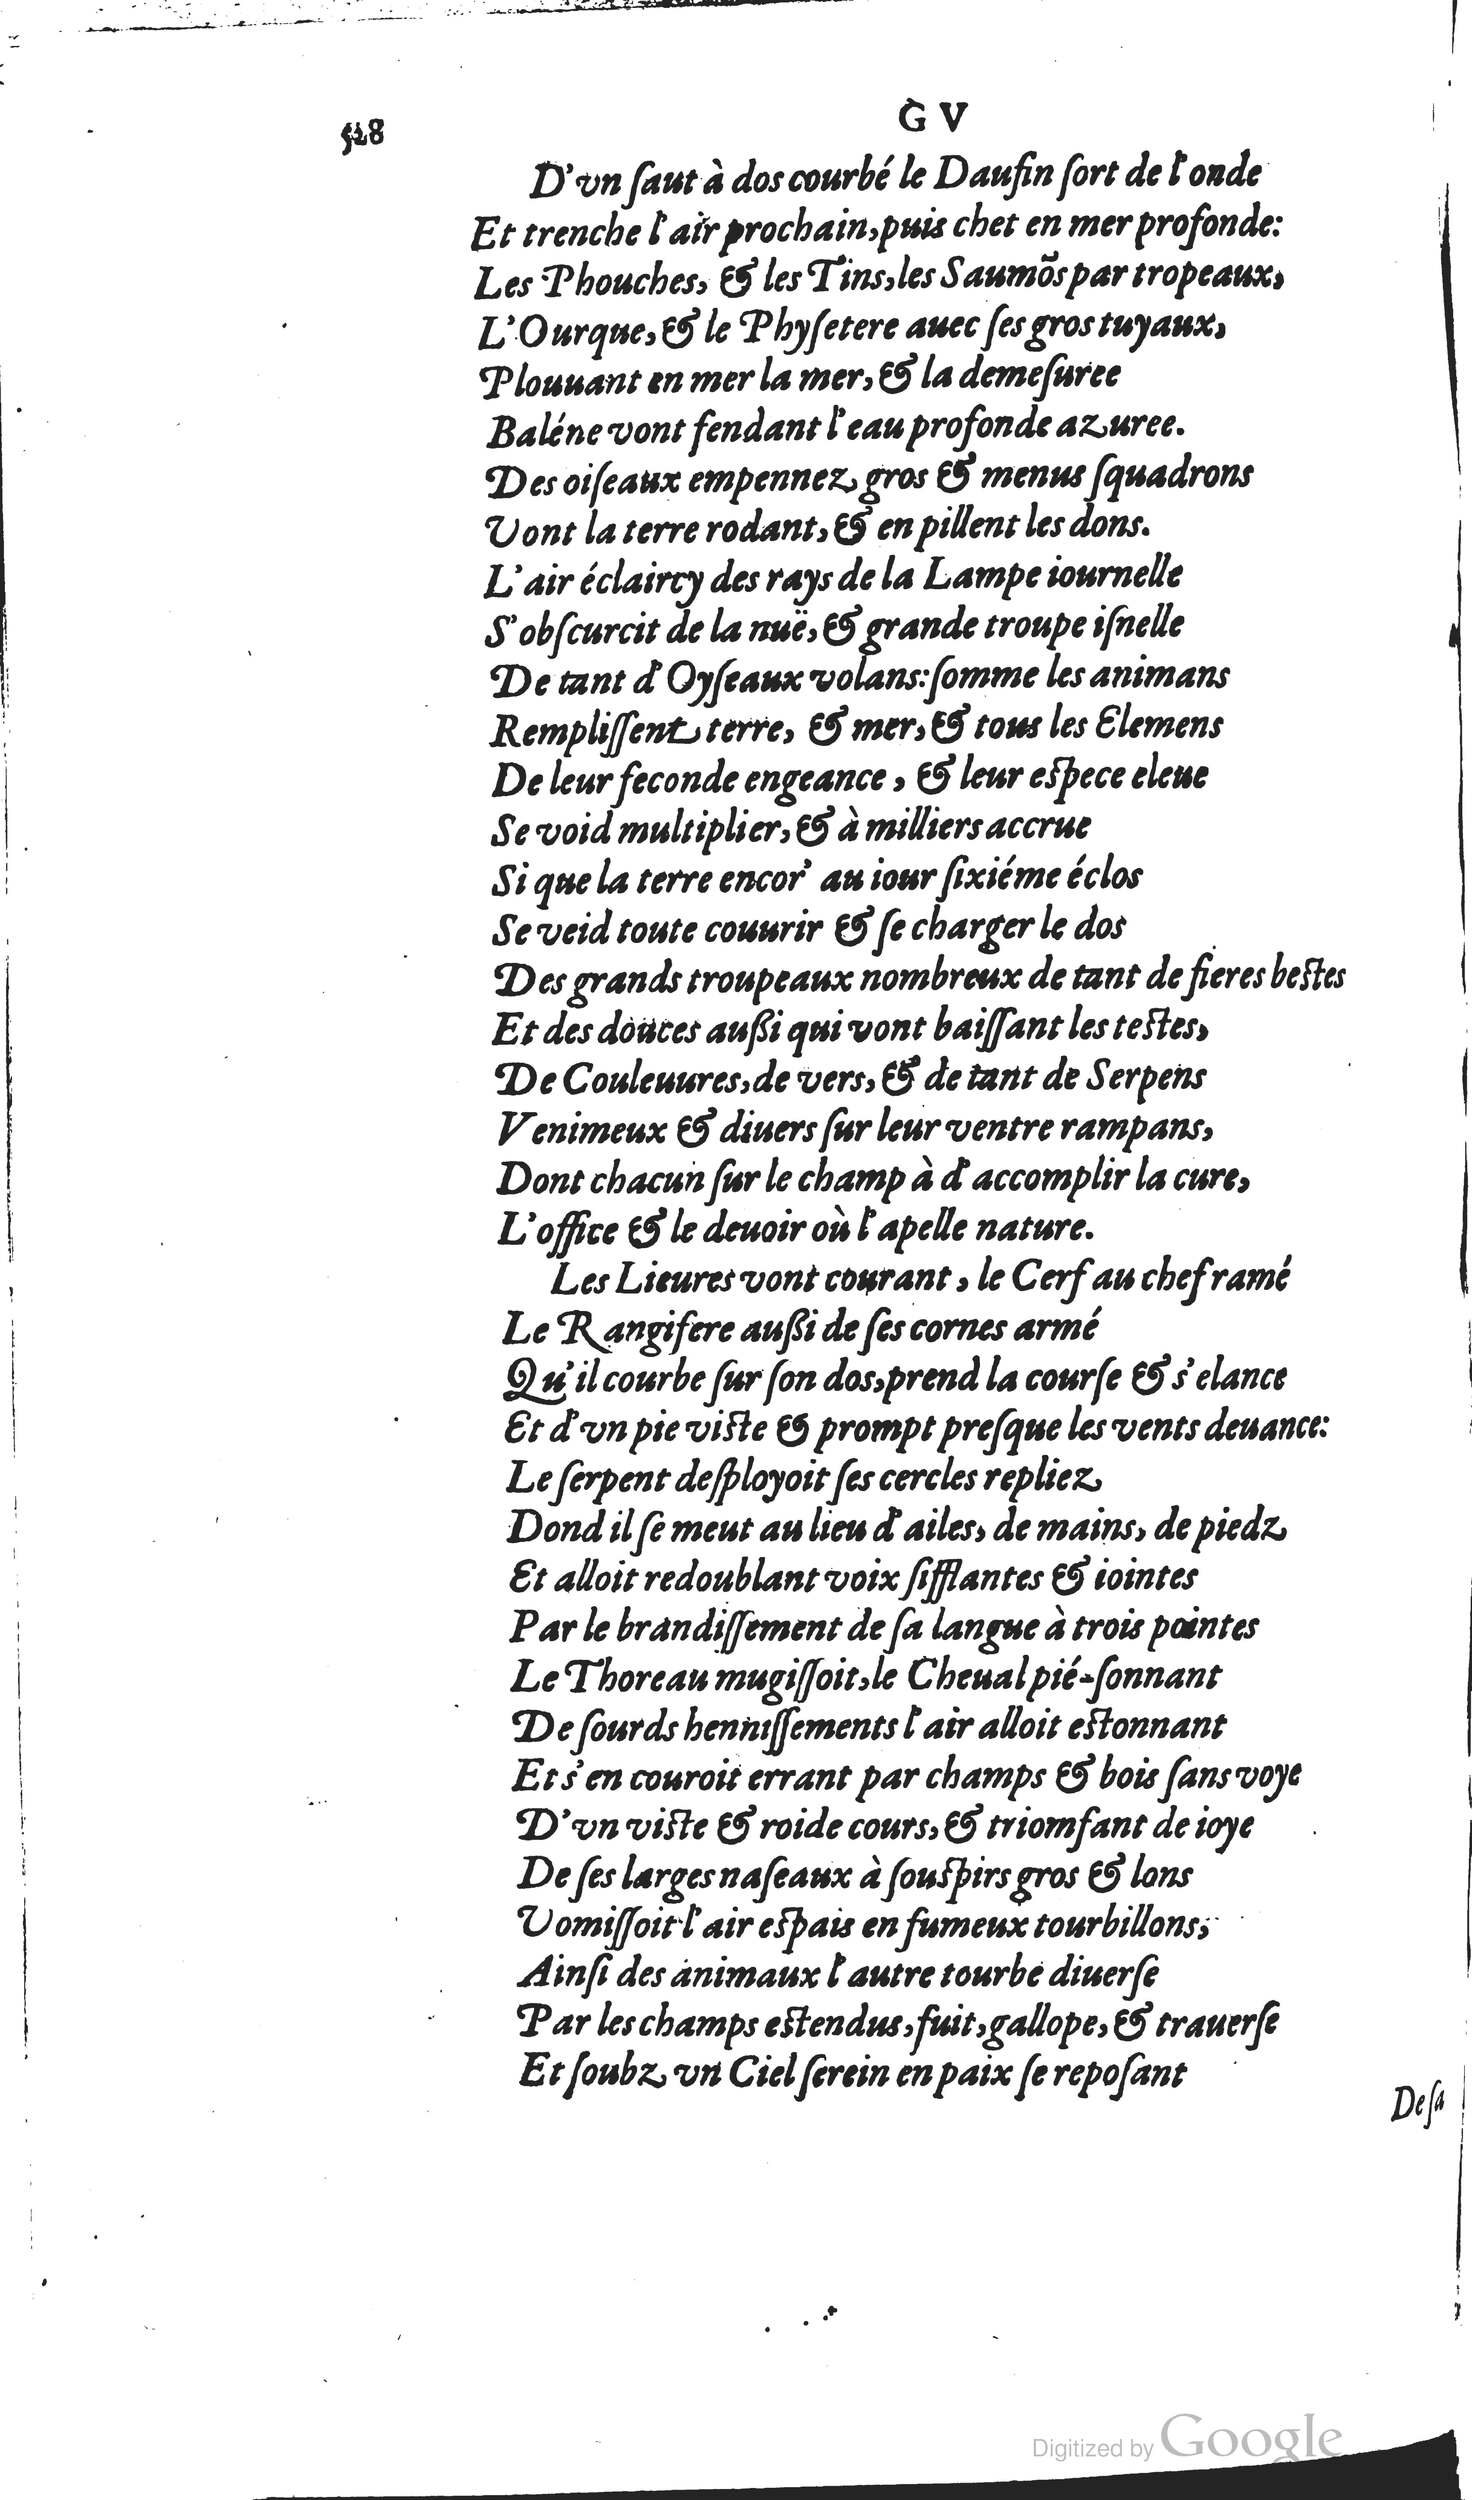 528
G V
D'vn ſaut à dos courbé le Daufin ſort de l'onde
Et trenche l'air prochain, puis chet en mer profonde:
Les Phouches, & les Tins, les Saumõs par tropeaux,
L'Ourque, & le Phyſetere auec ſes gros tuyaux,
Plouuant en mer la mer, & la demeſuree
Baléne vont fendant l'eau profonde azuree.
Des oiſeaux empennez gros & menus ſquadrons
Vont la terre rodant, & en pillent les dons.
L'air éclaircy des rays de la Lampe iournelle
S'obſcurcit de la nuë, & grande troupe iſnelle
De tant d'Oyſeaux volans: ſomme les animans
Rempliſſent terre, & mer, & tous les Elemens
De leur feconde engeance, & leur eſpece eleue
Se void multiplier, & à milliers accrue
Si que la terre encor' au iour ſixiéme éclos
Se veid toute couurir & ſe charger le dos
Des grands troupeaux nombreux de tant de fieres beſtes
Et des douces außi qui vont baiſſant les teſtes,
De Couleuures, de vers, & de tant de Serpens
Venimeux & diuers ſur leur ventre rampans,
Dont chacun ſur le champ à d'accomplir la cure,
L'office & le deuoir où l'apelle nature.
Les Lieures vont courant, le Cerf au chef ramé
Le Rangifere außi de ſes cornes armé
Qu'il courbe ſur ſon dos, prend la courſe & s'elance
Et d'vn pie viſte & prompt preſque les vents deuance:
Le ſerpent deſployoit ſes cercles repliez
Dond il ſe meut au lieu d'ailes, de mains, de piedz
Et alloit redoublant voix ſifflantes & iointes
Par le brandiſſement de ſa langue à trois pointes
Le Thoreau mugiſſoit, le Cheual pié-ſonnant
De ſourds henniſſements l'air alloit eſtonnant
Et s'en couroit errant par champs & bois ſans voye
D'vn viſte & roide cours, & triomfant de ioye
De ſes larges naſeaux à ſouſpirs gros & lons
Vomiſſoit l'air eſpais en fumeux tourbillons,
Ainſi des animaux l'autre tourbe diuerſe
Par les champs eſtendus, fuit, gallope, & trauerſe
Et ſoubz vn Ciel ſerein en paix ſe repoſant
De ſa
Digitized by Google